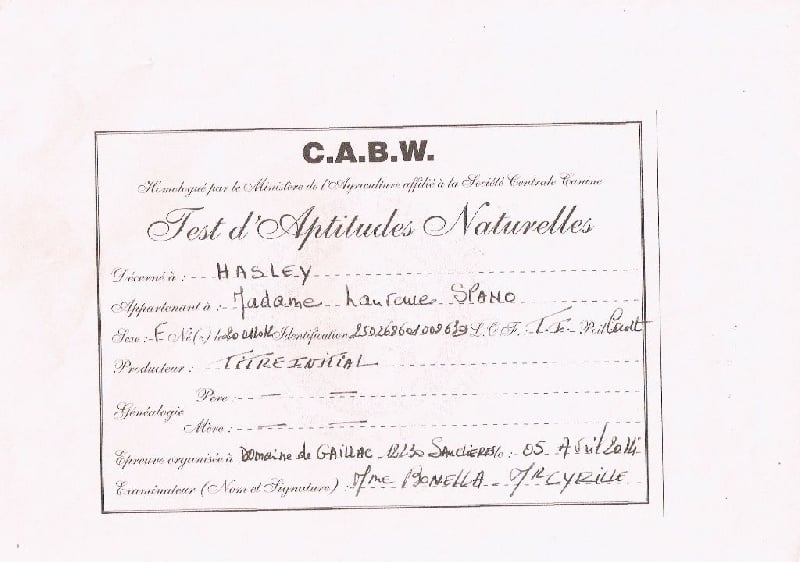 C.A.B.W.
Homologué par le Ministère de l'Agriculture affilié à la Société Centrale Canine
Test d'Aptitudes Naturelles
Décerné à : HASLEY
Appartenant à : Madame Laurence SPANO
Sexe : F Né( ) le Identification L.O.F. Poil Court
Producteur : TITRE INITIAL
Père : — —
Généalogie
Mère : — —
Epreuve organisée à Domaine de GAILLAC - 12230 SAUCLIERES le : 05 Avril 2014
Examinateur (Nom et Signature) : Mme BONELLA - Mr CYRILLE